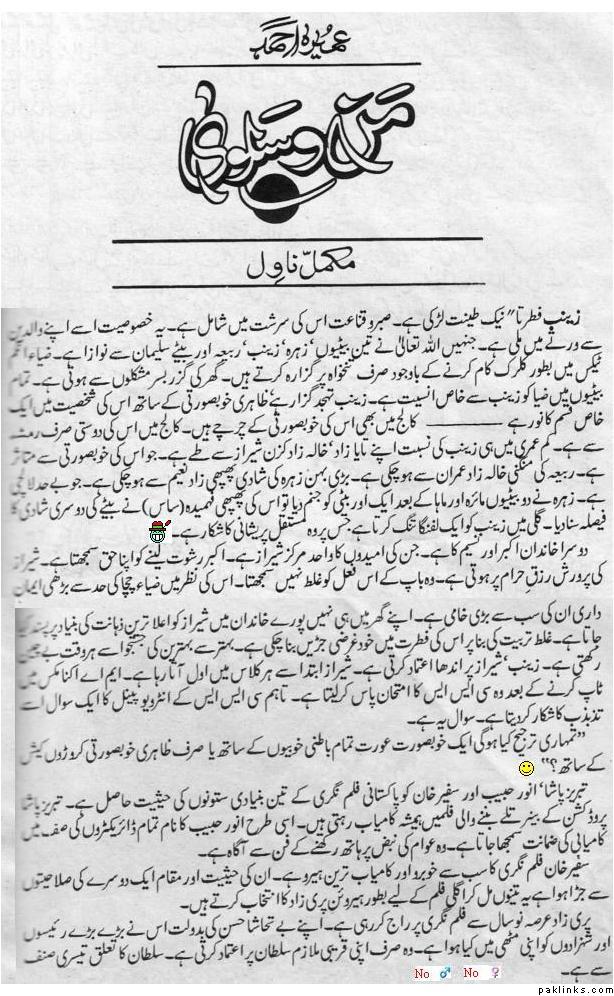 عمیرہ احمد
من و سلویٰ
مکمل ناول
زینب فطرتا" نیک طینت لڑکی ہے۔ صبر و قناعت اس کی سرشت میں شامل ہے۔ یہ خصوصیت اسے اپنے والدین
سے ورثے میں ملی ہے۔ جنہیں اللہ تعالیٰ نے تین بیٹیوں، زہرہ، زینب، ربیعہ اور بیٹے سلیمان سے نوازا ہے۔ ضیاء انکم
ٹیکس میں بطور کلرک کام کرنے کے باوجود صرف تنخواہ پر گزارہ کرتے ہیں۔ گھر کی گزر بسر مشکلوں سے ہوتی ہے۔ تمام
بیٹیوں میں ضیا کو زینب سے خاص انسیت ہے۔ زینب تہجد گزار ہے ظاہری خوبصورتی کے ساتھ اس کی شخصیت میں ایک
خاص قسم کا نور ہے ——— کالج میں بھی اس کی خوبصورتی کے چرچے ہیں۔ کالج میں اس کی دوستی صرف رمشہ
سے ہے۔ کم عمری میں ہی زینب کی نسبت اپنے تایا زاد، خالہ زاد کزن شیراز سے طے ہے۔ جو اس کی خوبصورتی سے متاثر
ہے۔ ربیعہ کی منگنی خالہ زاد عمران سے ہو چکی ہے۔ بڑی بہن زہرہ کی شادی پھپھی زاد نعیم سے ہو چکی ہے۔ جو بے حد لالچی
ہے۔ زہرہ نے دو بیٹیوں مائرہ اور ماہا کے بعد ایک اور بیٹی کو جنم دیا تو اس کی پھپھی فہمیدہ (ساس) نے بیٹے کی دوسری شادی کا
فیصلہ سنا دیا۔ گلی میں زینب کو ایک لفنگا تنگ کرتا ہے جس پر وہ مستقل پریشانی کا شکار ہے۔
دوسرا خاندان اکبر اور نسیم کا ہے۔ جن کی امیدوں کا واحد مرکز شیراز ہے۔ اکبر رشوت لینے کو اپنا حق سمجھتا ہے۔ شیراز
کی پرورش رزق حرام پر ہوتی ہے۔ وہ باپ کے اس فعل کو غلط نہیں سمجھتا۔ اس کی نظر میں ضیاء چچا کی حد سے بڑھی ایمان
داری ان کی سب سے بڑی خامی ہے۔ اپنے گھر میں ہی نہیں پورے خاندان میں شیراز کو اعلا ترین ذہانت کی بنیاد پر پسند کیا
جاتا ہے۔ غلط تربیت کی بنا پر اس کی فطرت میں خود غرضی جڑیں بنا چکی ہے۔ بہتر سے بہترین کی جستجو اسے ہر وقت بے چین
رکھتی ہے۔ زینب، شیراز پر اندھا اعتماد کرتی ہے۔ شیراز ابتدا سے ہر کلاس میں اول آتا رہا ہے۔ ایم اے اکنامکس میں
ٹاپ کرنے کے بعد وہ سی ایس ایس کا امتحان پاس کر لیتا ہے۔ تاہم سی ایس ایس کے انٹرویو پینل کا ایک سوال اسے
تذبذب کا شکار کر دیتا ہے۔ سوال یہ ہے۔
"تمہاری ترجیح کیا ہوگی ایک خوبصورت عورت تمام باطنی خوبیوں کے ساتھ یا صرف ظاہری خوبصورتی کروڑوں کیش
کے ساتھ؟"
تبریز پاشا، انور حبیب اور سفیر خان کو پاکستانی فلم نگری کے تین بنیادی ستونوں کی حیثیت حاصل ہے۔ تبریز پاشا
پروڈکشن کے بینر تلے بننے والی فلمیں ہمیشہ کامیاب رہتی ہیں۔ اسی طرح انور حبیب کا نام تمام ڈائریکٹروں کی صف میں
کامیابی کی ضمانت سمجھا جاتا ہے۔ وہ عوام کی نبض پر ہاتھ رکھنے کے فن سے آگاہ ہے۔
سفیر خان فلم نگری کا سب سے خوبرو اور کامیاب ترین ہیرو ہے۔ ان کی حیثیت اور مقام ایک دوسرے کی صلاحیتوں
سے جڑا ہوا ہے یہ تینوں مل کر اگلی فلم کے لیے بطور ہیروئن پری زاد کا انتخاب کرتے ہیں۔
پری زاد عرصہ نو سال سے فلم نگری پر راج کر رہی ہے۔ اپنے بے تحاشا حسن کی بدولت اس نے بڑے بڑے رئیسوں
اور شہزادوں کو اپنی مٹھی میں کیا ہوا ہے۔ وہ صرف اپنی قریبی ملازم سلطان پر اعتماد کرتی ہے۔ سلطان کا تعلق تیسری صنف
سے ہے۔ No ♂ No ♀
paklinks.com